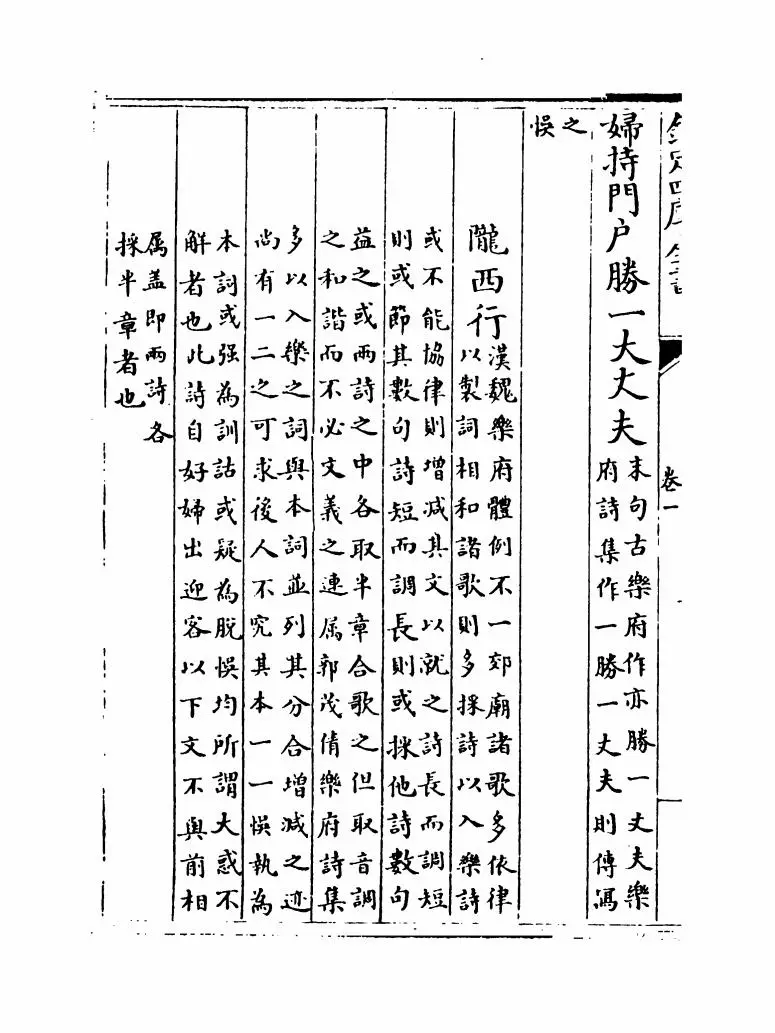 欽定四庫全書
卷一
婦持門户勝一大丈夫
末句古樂府作亦勝一丈夫樂
府詩集作一勝一丈夫則傳寫
之
悞
隴西行
漢魏樂府體例不一郊廟諸歌多依律
以製詞相和諸歌則多採詩以入樂詩
或不能協律則增减其文以就之詩長而調短
則或節其數句詩短而調長則或採他詩數句
益之或兩詩之中各取半章合歌之但取音調
之和諧而不必文義之連属郭茂倩樂府詩集
多以入樂之詞與本詞並列其分合增減之迹
尚有一二之可求後人不究其本一一悞執為
本詞或强為訓詁或疑為脱悞均所謂大惑不
解者也此詩自好婦出迎客以下文不與前相
属盖即兩詩各
採半章者也